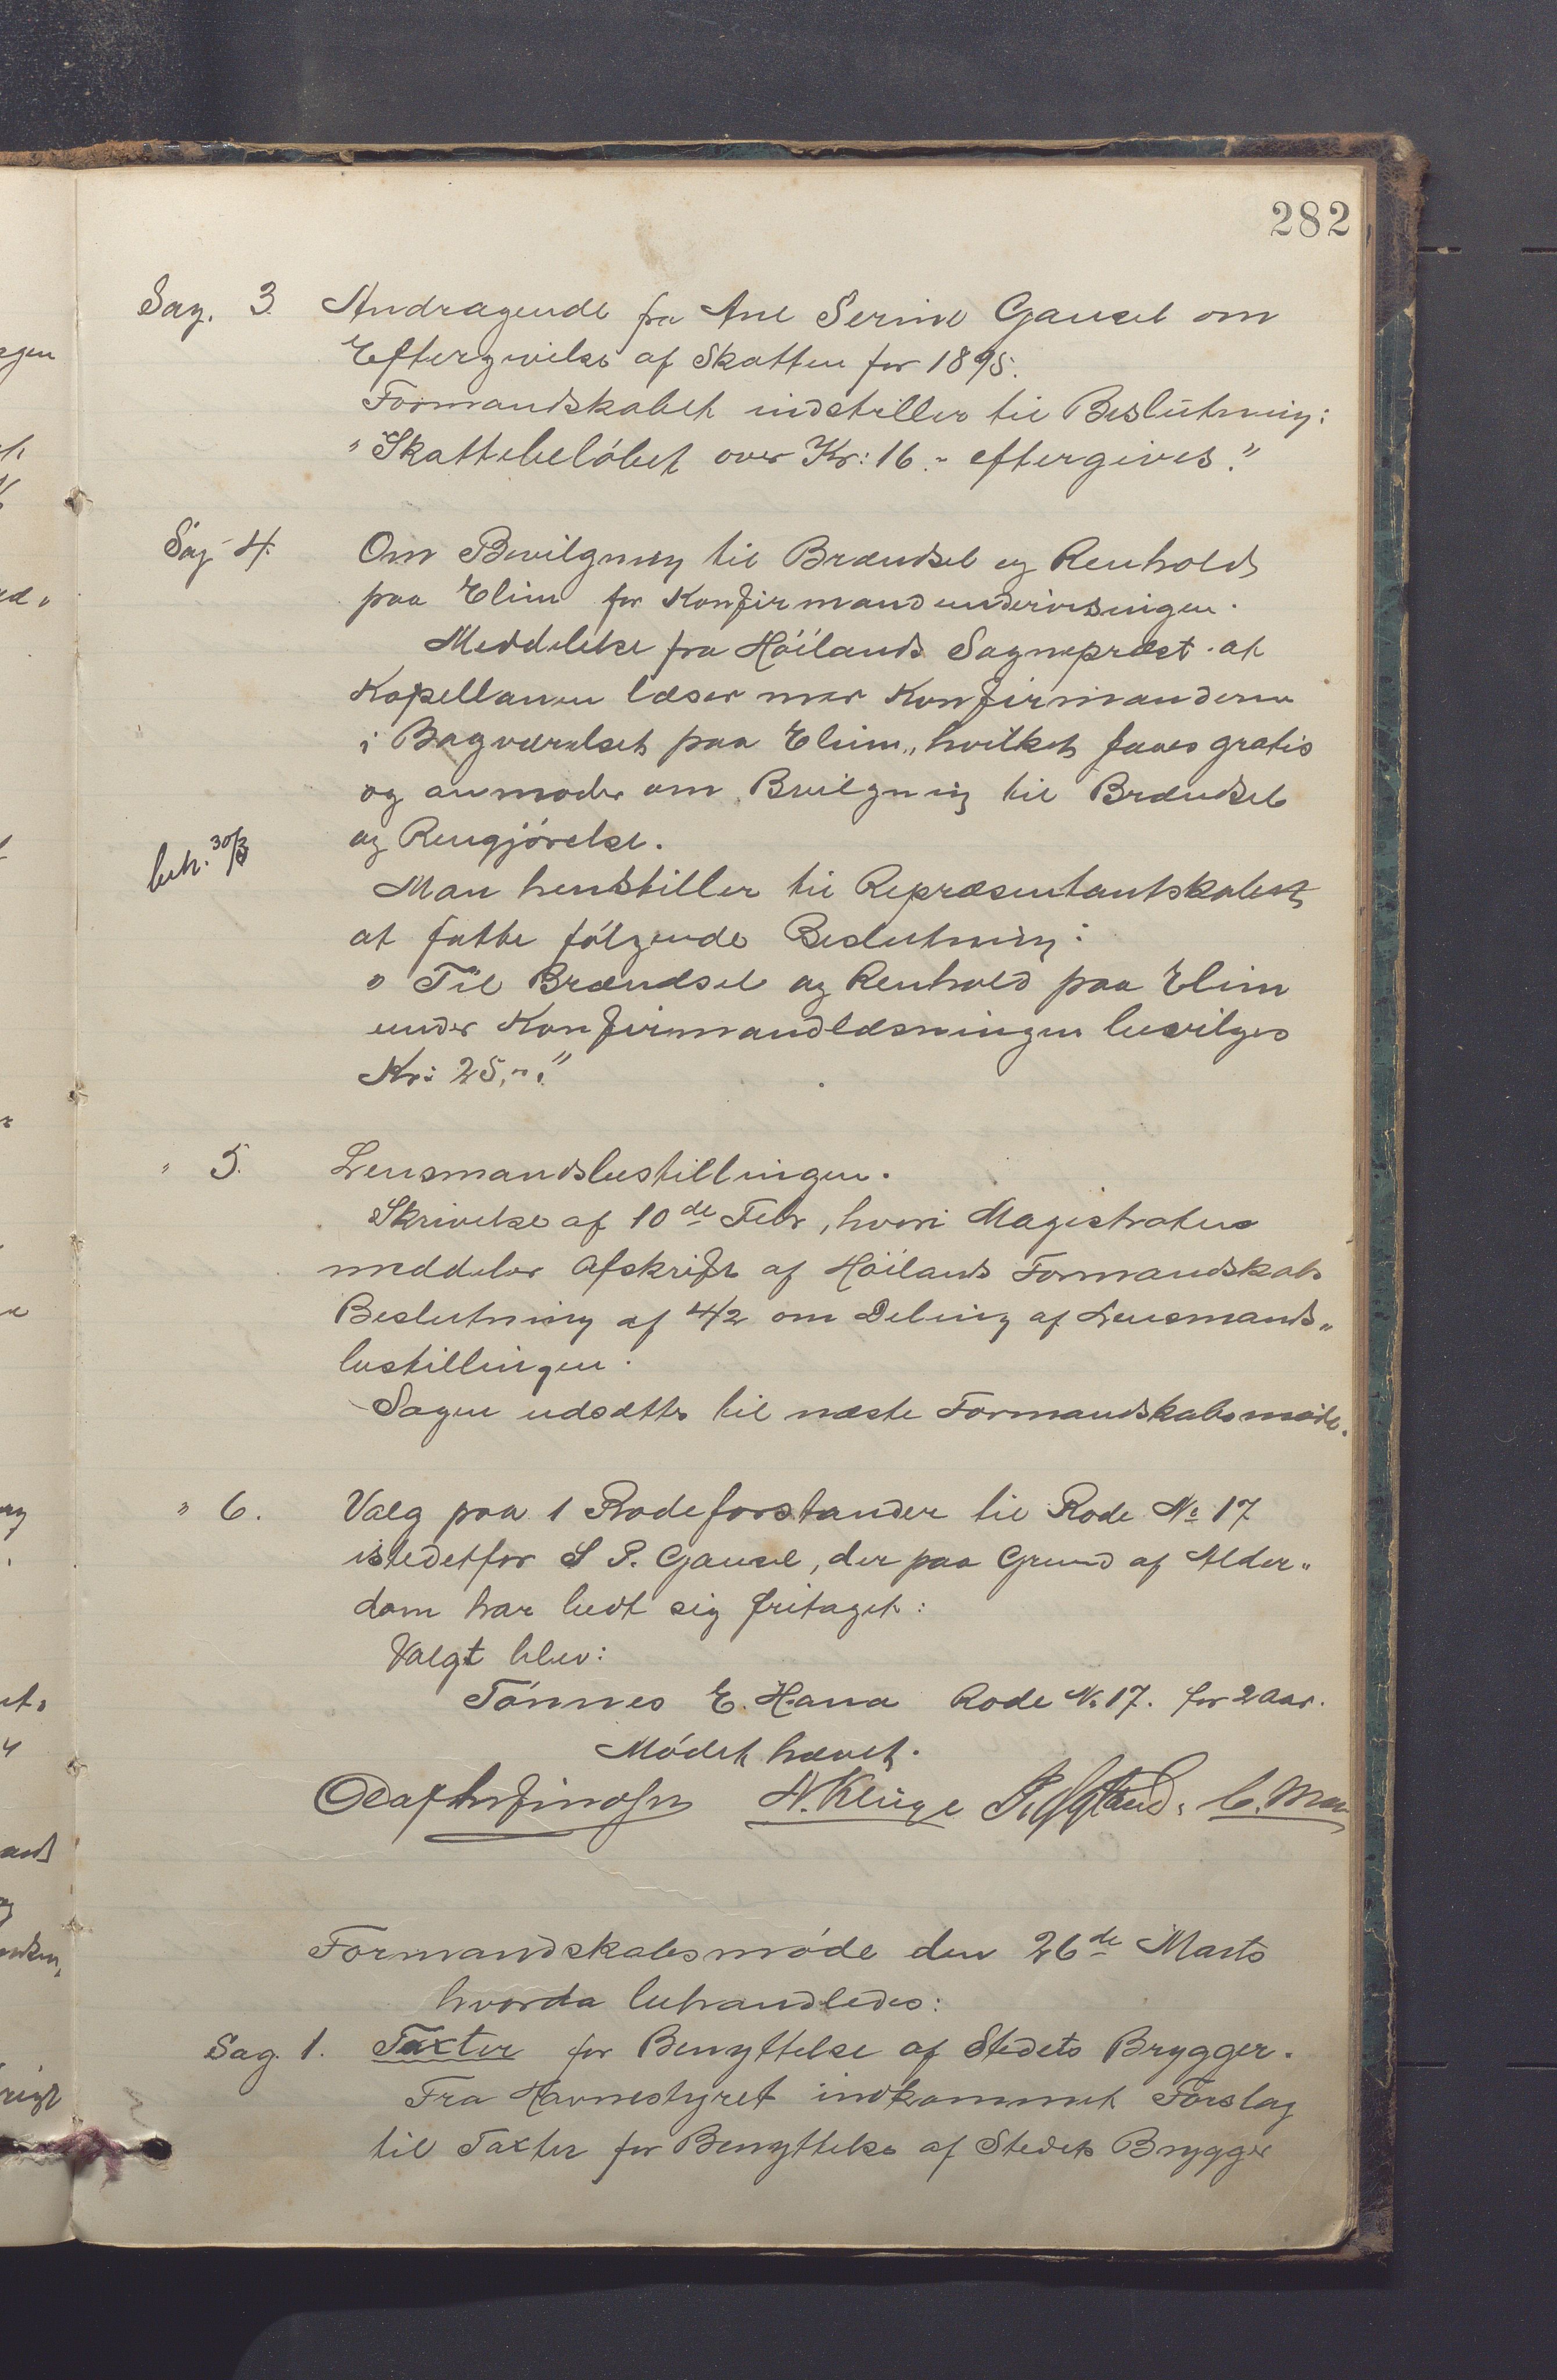 282
Sag. 3. Andragende fra Ane Serine Gausel om
Eftergivelse af Skatten for 1895.
Formandskabet indstiller til Beslutning:
"Skattebeløbet over Kr: 16.- eftergives."
Sag 4. Om Bevilgning til Brændsel og Renhold
paa Elim for Konfirmandundervisningen.
Meddelelse fra Höilands Sogneprest at
Kapellanen læser mer Konfirmanderne
i Bagværelset paa Elim, hvilket faaes gratis
og anmoder om Bevilgning til Brændsel
og Rengjørelse.
beh. 30/3
Man henstiller til Repræsentantskabet
at fatte følgende Beslutning:
"Til Brændsel og Renhold paa Elim
under Konfirmandlæsningen bevilges
Kr: 25,-."
" 5. Lensmandsbestillingen.
Skrivelse af 10de Febr, hvori Magistraten
meddeler Afskrift af Höilands Formandskabs
Beslutning af 4/2 om Deling af Lensmands-
bestillingen.
Sagen udsættes til næste Formandskabsmöde.
" 6. Valg paa 1 Rodeforstander til Rode No 17
istedetfor S P. Gausel, der paa Grund af Alder-
dom har bedt sig fritaget:
Valgt blev:
Tönnes E. Hana Rode No 17. for 2 Aar.
Mødet hævet.
N. Kluge
Formandskabsmøde den 26de Marts
hvorda behandledes:
Sag. 1. Taxter for Benyttelse af Stedets Brygger.
Fra Havnestyret indkommet Forslag
til Taxter for Benyttelse af Stedets Brygger